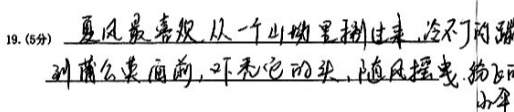 19.(5分) 夏风最喜欢从一个山坳里捌过来,冷不丁的蹦
到蒲公英面前,吓秃它的头,随风摇曳.物
小伞